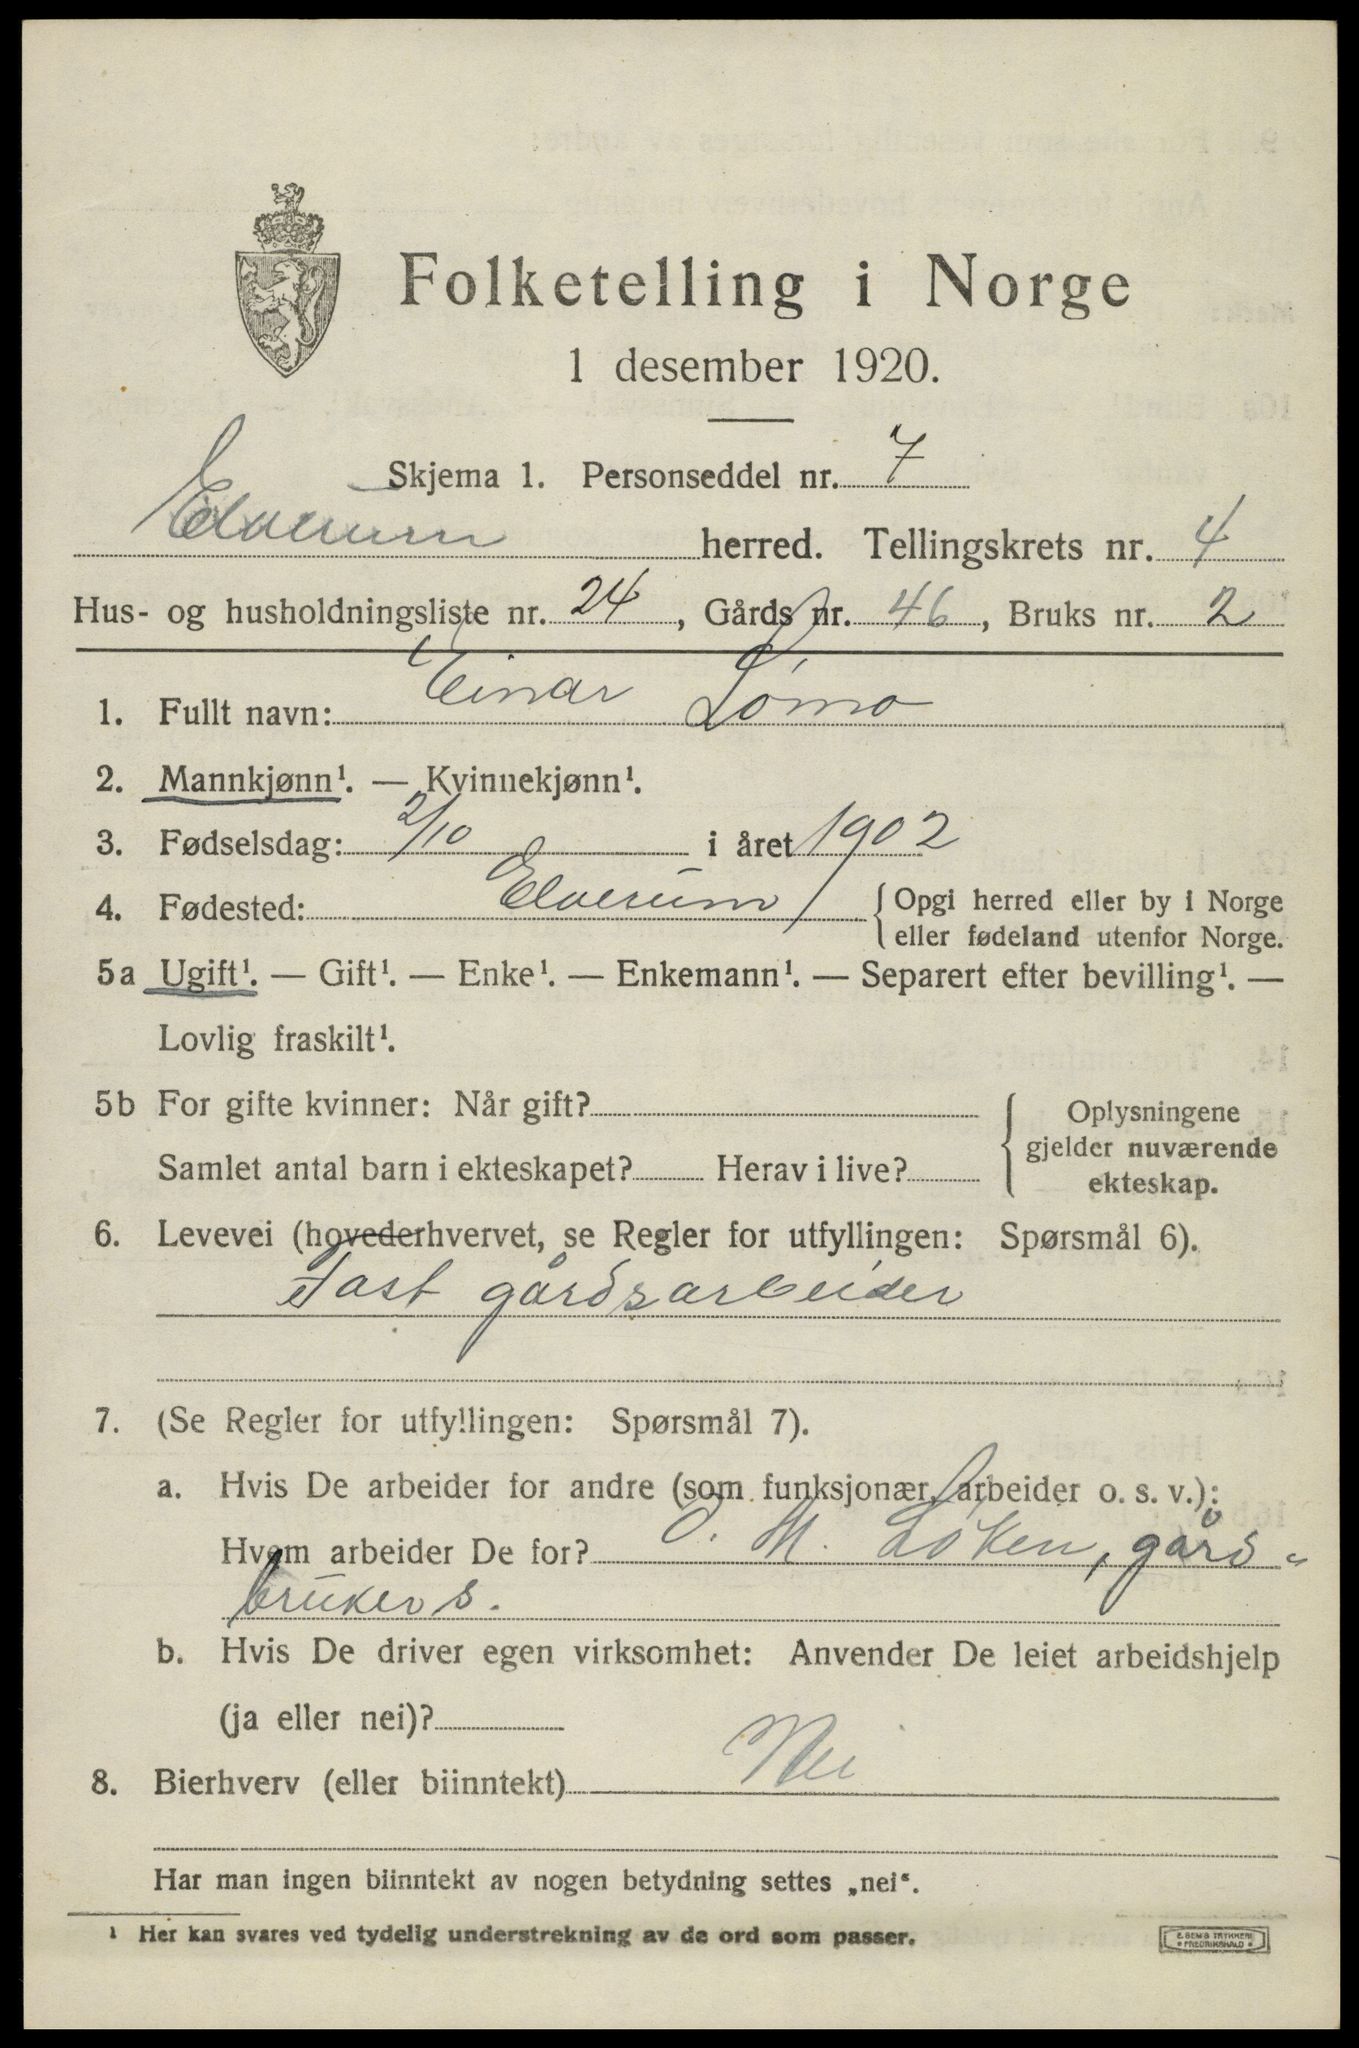 Folketelling i Norge
1 desember 1920.
Skjema 1. Personseddel nr. 7
Elverum herred. Tellingskrets nr. 4
Hus- og husholdningsliste nr. 24, Gårds nr. 46, Bruks nr. 2
1. Fullt navn: Einar Lømo
2. Mannkjønn¹. — Kvinnekjønn¹.
3. Fødselsdag: 2/10 i året 1902
4. Fødested: Elverum { Opgi herred eller by i Norge
eller fødeland utenfor Norge.
5a Ugift¹. — Gift¹. — Enke¹. — Enkemann¹. — Separert efter bevilling¹. —
Lovlig fraskilt¹.
5b For gifte kvinner: Når gift? { Oplysningene
gjelder nuværende
Samlet antal barn i ekteskapet? Herav i live? ekteskap.
6. Levevei (hovederhvervet, se Regler for utfyllingen: Spørsmål 6).
Fast gårdsarbeider
7. (Se Regler for utfyllingen: Spørsmål 7).
a. Hvis De arbeider for andre (som funksjonær, arbeider o. s. v.):
Hvem arbeider De for? O. M. Løken, gård-
brukers.
b. Hvis De driver egen virksomhet: Anvender De leiet arbeidshjelp
(ja eller nei)?
8. Bierhverv (eller biinntekt) Nei
Har man ingen biinntekt av nogen betydning settes „nei“.
¹ Her kan svares ved tydelig understrekning av de ord som passer.
E. SEM'S TRYKKERI
FREDRIKSHALD